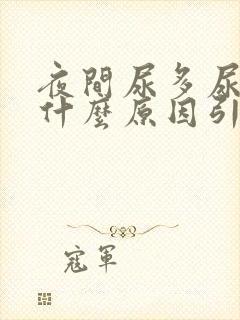 夜間尿多尿
什麼原因引
寇軍